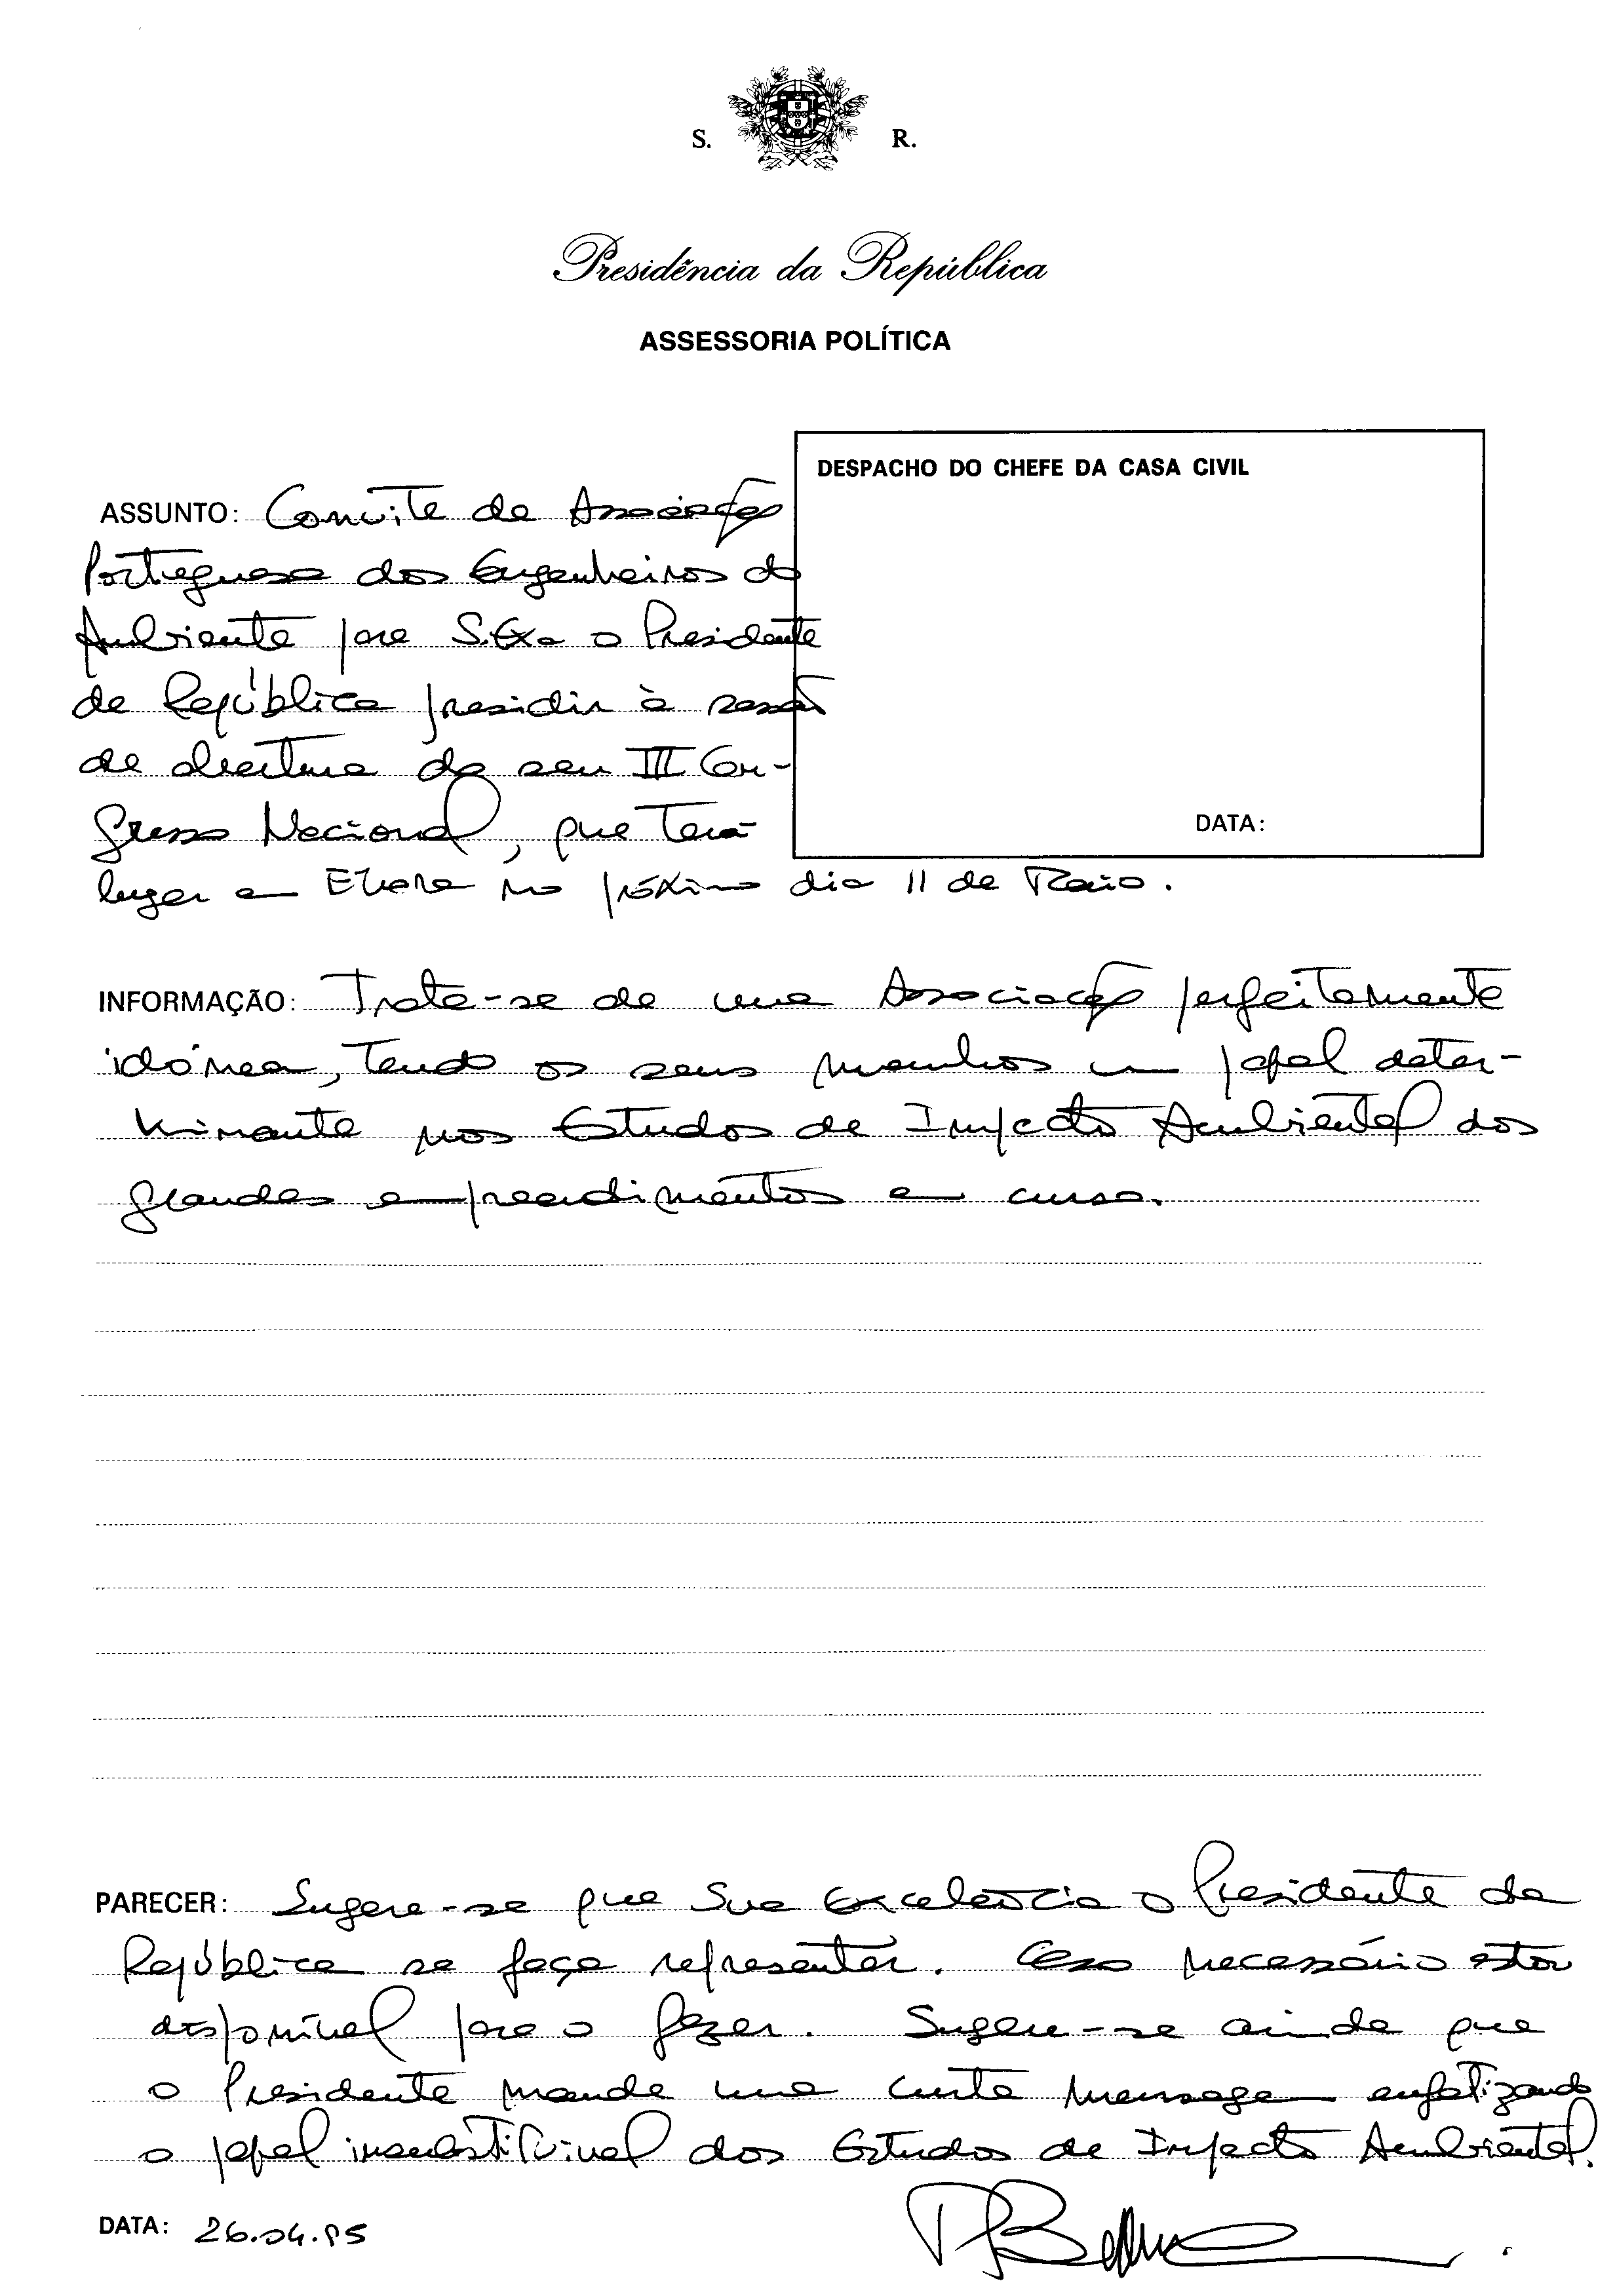 S. R.
Presidência da República
ASSESSORIA POLÍTICA
DESPACHO DO CHEFE DA CASA CIVIL
DATA:
ASSUNTO: Convite da Associação
Portuguesa dos Engenheiros do
Ambiente para S.Exa o Presidente
da República presidir à sessão
de abertura do seu III Con-
gresso Nacional, que terá
lugar em Évora no próximo dia 11 de Maio.
INFORMAÇÃO: Trata-se de uma Associação perfeitamente
idónea, tendo os seus membros um papel deter-
minante nos Estudos de Impacto Ambiental dos
grandes empreendimentos em curso.
PARECER: Sugere-se que Sua Excelência o Presidente da
República se faça representar. Caso necessário estou
disponível para o fazer. Sugere-se ainda que
o Presidente mande uma curta mensagem enfatizando
o papel insubstituível dos Estudos de Impacto Ambiental.
DATA: 26.04.95